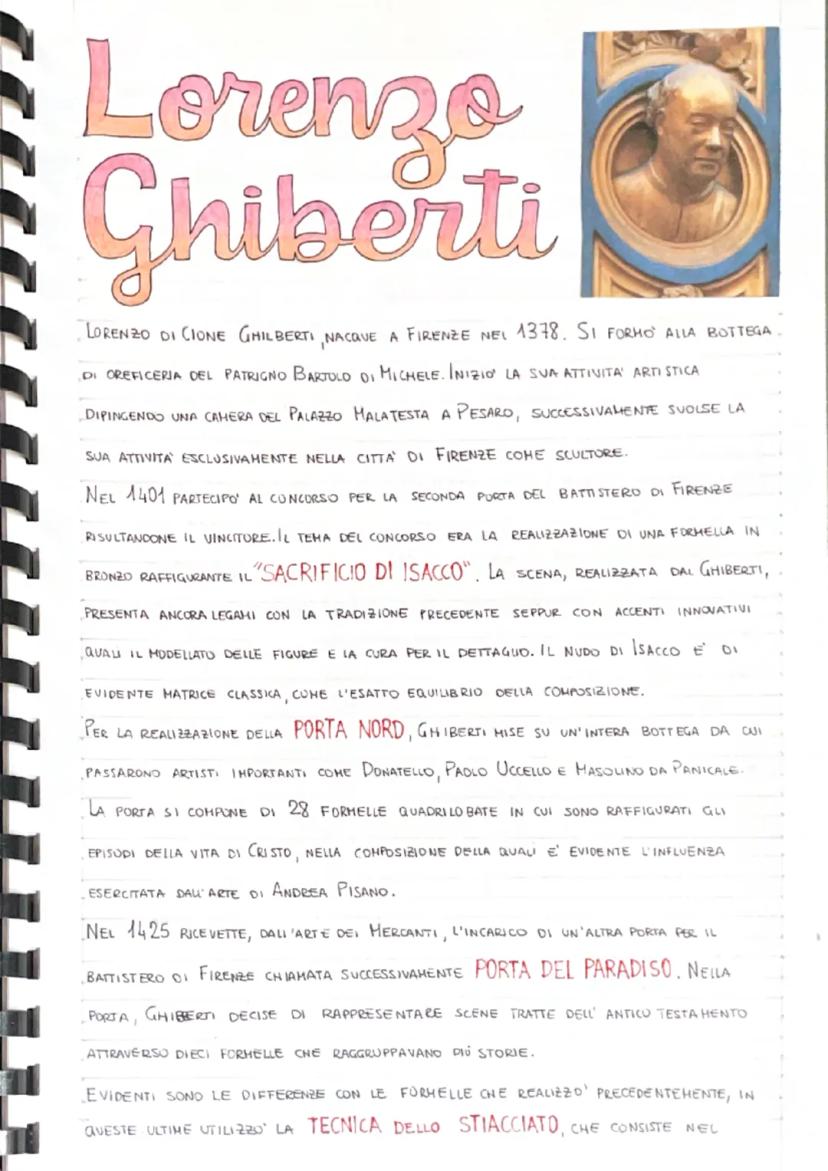 Lorenzo
Ghiberti
LORENZO DI CIONE GHILBERTI, NACQUE A FIRENZE NEL 1378. SI FORMO' ALLA BOTTEGA
DI OREFICERIA DEL PATRIGNO BARTOLO DI MICHELE. INIZIO' LA SUA ATTIVITA' ARTISTICA
DIPINGENDO UNA CAMERA DEL PALAZZO MALATESTA A PESARO, SUCCESSIVAMENTE SVOLSE LA
SUA ATTIVITA' ESCLUSIVAMENTE NELLA CITTA' DI FIRENZE COME SCULTORE.
NEL 1401 PARTECIPO' AL CONCORSO PER LA SECONDA PORTA DEL BATTISTERO DI FIRENZE
RISULTANDONE IL VINCITORE. IL TEMA DEL CONCORSO ERA LA REALIZZAZIONE DI UNA FORMELLA IN
BRONZO RAFFIGURANTE IL "SACRIFICIO DI ISACCO". LA SCENA, REALIZZATA DAL GHIBERTI,
PRESENTA ANCORA LEGAMI CON LA TRADIZIONE PRECEDENTE SEPPUR CON ACCENTI INNOVATIVI
QUALI IL MODELLATO DELLE FIGURE E LA CURA PER IL DETTAGLIO. IL NUDO DI ISACCO E' DI
EVIDENTE MATRICE CLASSICA, COME L'ESATTO EQUILIBRIO DELLA COMPOSIZIONE.
PER LA REALIZZAZIONE DELLA PORTA NORD, GHIBERTI MISE SU UN'INTERA BOTTEGA DA CUI
PASSARONO ARTISTI IMPORTANTI COME DONATELLO, PAOLO UCCELLO E MASOLINO DA PANICALE.
LA PORTA SI COMPONE DI 28 FORMELLE QUADRILOBATE IN CUI SONO RAFFIGURATI GLI
EPISODI DELLA VITA DI CRISTO, NELLA COMPOSIZIONE DELLA QUALI E' EVIDENTE L'INFLUENZA
ESERCITATA DALL'ARTE DI ANDREA PISANO.
NEL 1425 RICEVETTE, DALL'ARTE DEI MERCANTI, L'INCARICO DI UN'ALTRA PORTA PER IL
BATTISTERO DI FIRENZE CHIAMATA SUCCESSIVAMENTE PORTA DEL PARADISO. NELLA
PORTA, GHIBERTI DECISE DI RAPPRESENTARE SCENE TRATTE DELL' ANTICO TESTAMENTO
ATTRAVERSO DIECI FORMELLE CHE RAGGRUPPAVANO PIÚ STORIE.
EVIDENTI SONO LE DIFFERENZE CON LE FORMELLE CHE REALIZZO' PRECEDENTEMENTE, IN
QUESTE ULTIME UTILIZZO' LA TECNICA DELLO STIACCIATO, CHE CONSISTE NEL